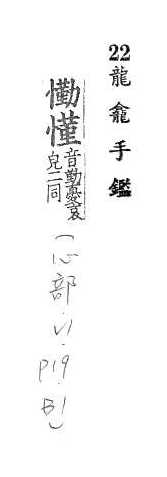 22 龍龕手鑑
懃慬音勤憂哀
皃二同
(心部.V1.P19.B1)